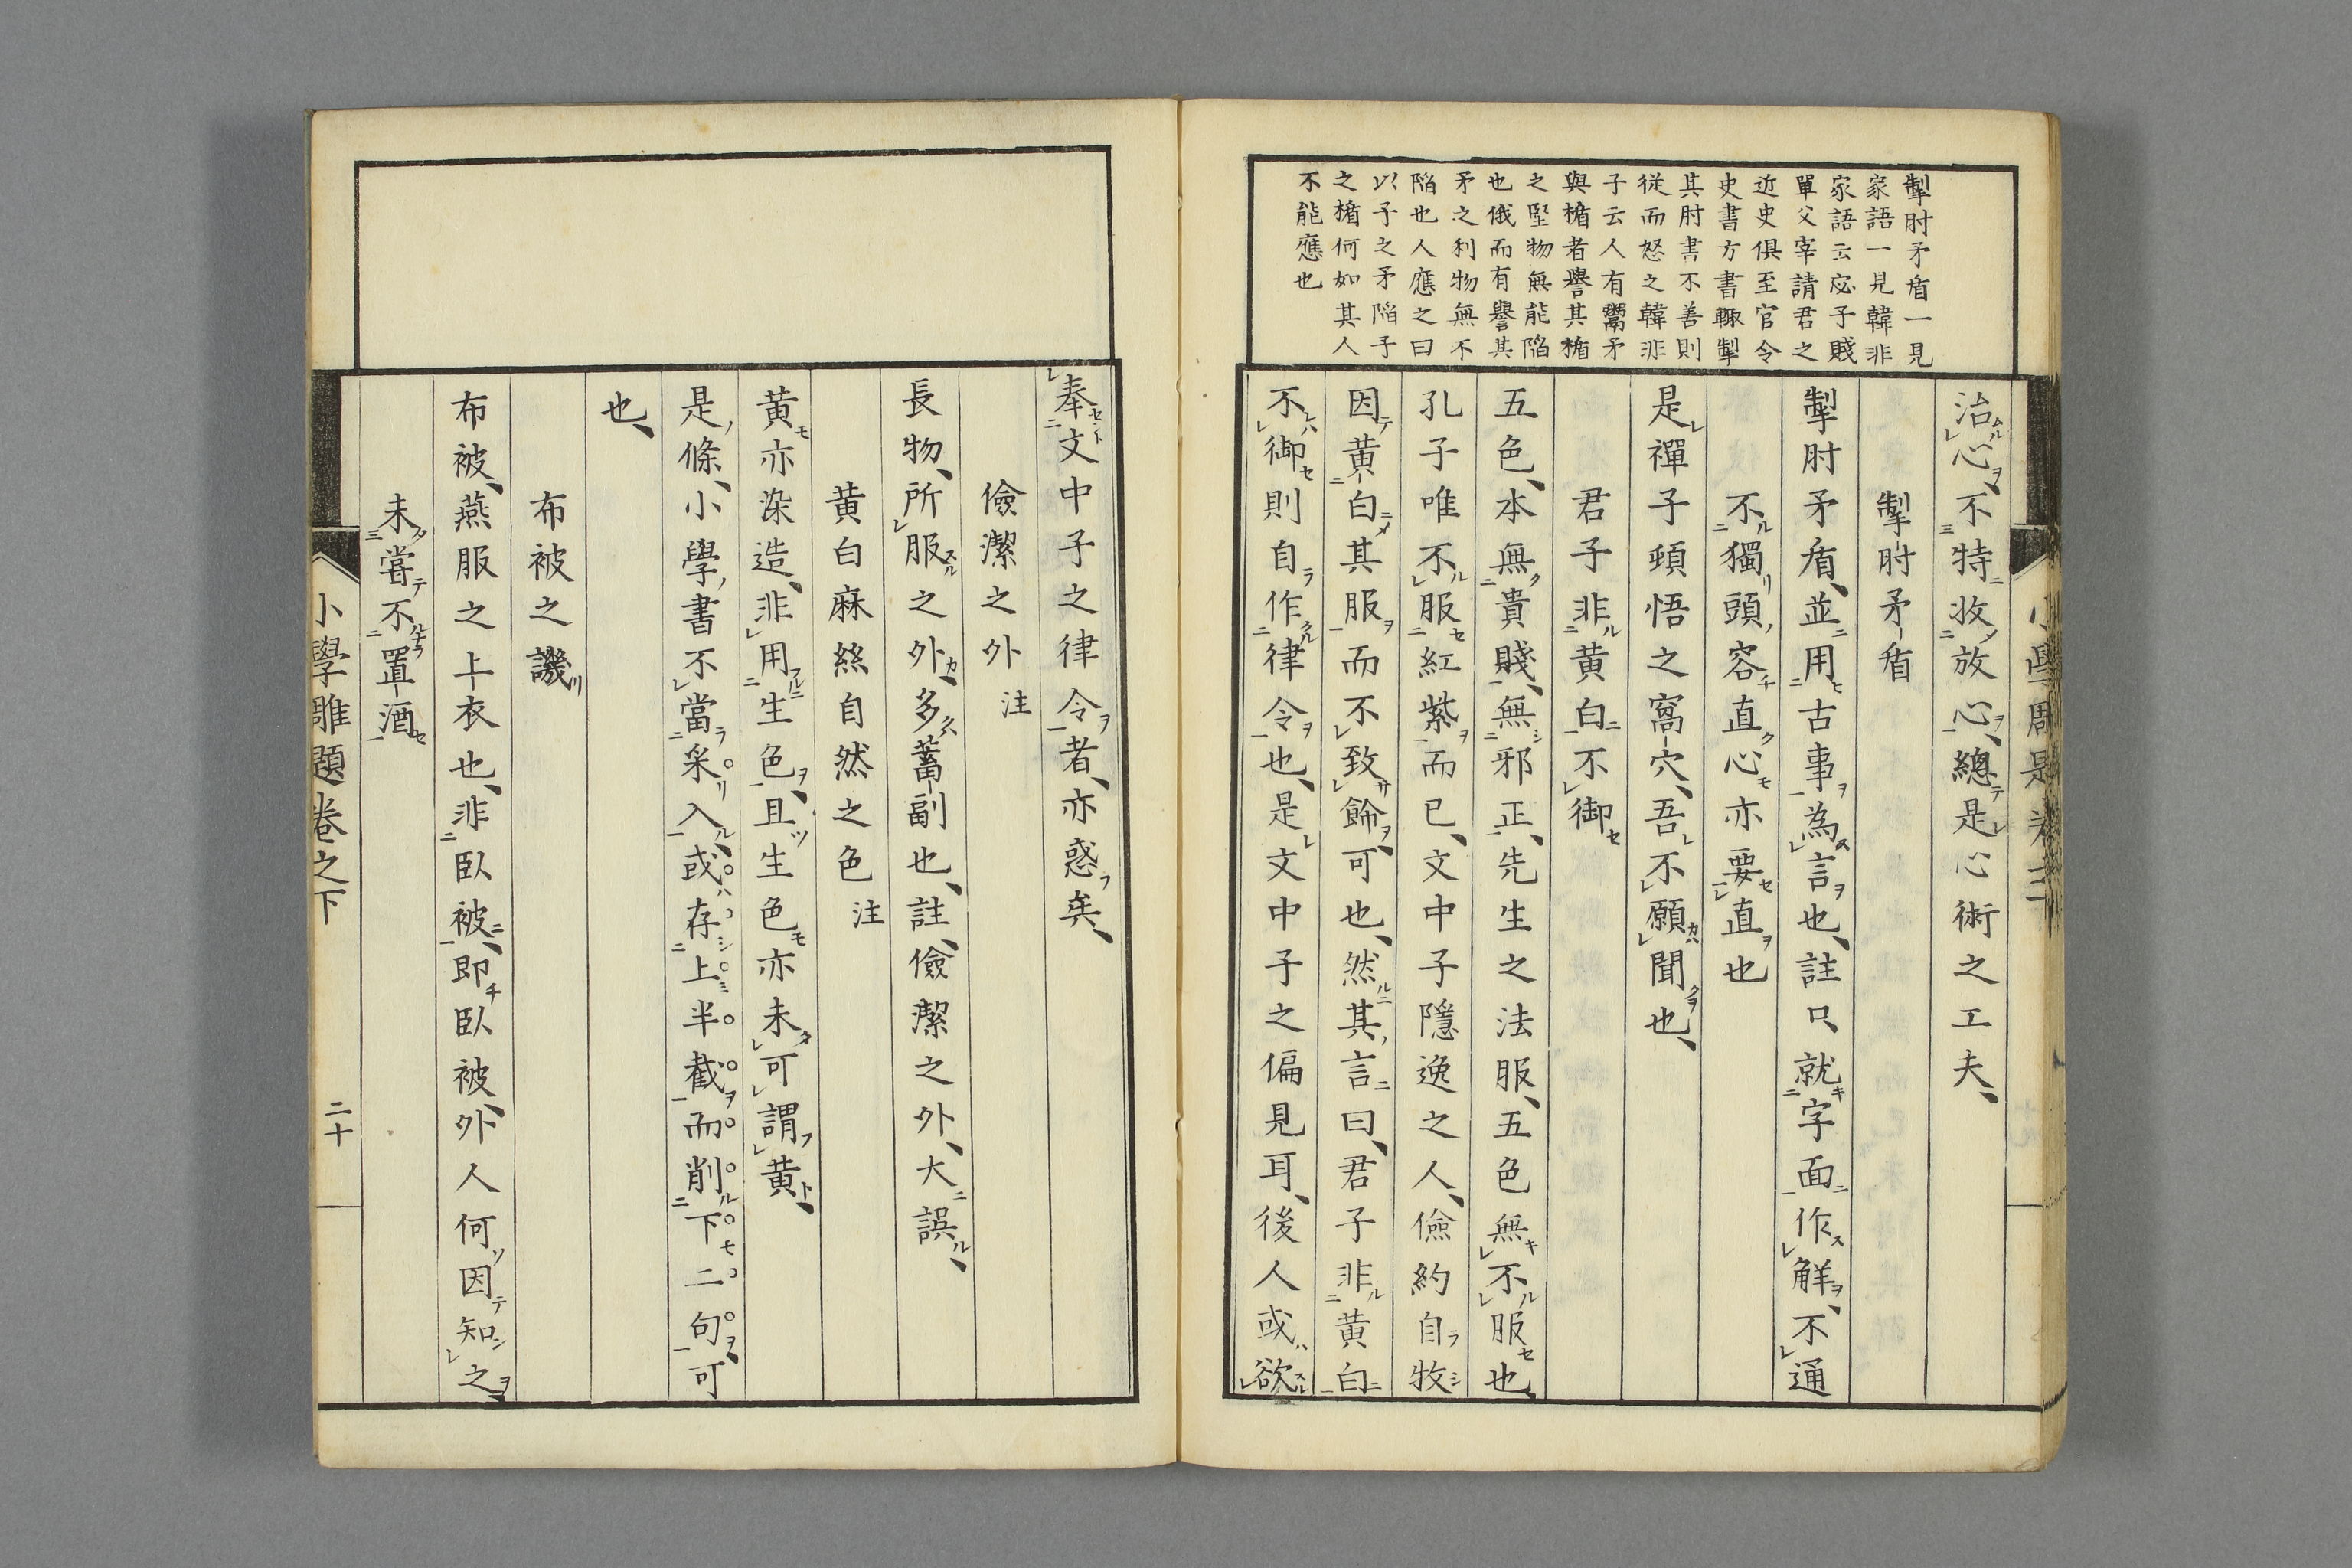 掣肘矛盾一見
家語一見韓非
家語云宓子賤
單父宰請君之
近史俱至官令
史書方書輙掣
其肘書不善則
從而怒之韓非
子云人有鬻矛
與楯者譽其楯
之堅物無能陷
也俄而有譽其
矛之利物無不
陷也人應之曰
以子之矛陷子
之楯何如其人
不能應也
治心、不特收放心、總是心術之工夫、
掣肘矛盾
掣肘矛盾、並用古事為言也、註只就字面作解、不通
不獨頭容直心亦要直也
是禪子頓悟之窩穴、吾不願聞也、
君子非黃白不御
五色、本無貴賤、無邪正、先生之法服、五色無不服也、
孔子唯不服紅紫而已、文中子隱逸之人、儉約自牧
因黃白其服而不致飾、可也、然其言曰、君子非黃白
不御則自作律令也、是文中子之偏見耳、後人或欲
奉文中子之律令者、亦惑矣、
儉潔之外 注
長物、所服之外、多蓄副也、註、儉潔之外、大誤、
黃白麻絲自然之色 注
黃亦染造、非用生色、且生色亦未可謂黃、
是條、小學書不當采入、或存上半截而削下二句、可
也、
布被之譏
布被、燕服之上衣也、非臥被、即臥被、外人何因知之、
未嘗不置酒
小學雕題卷之下
二十